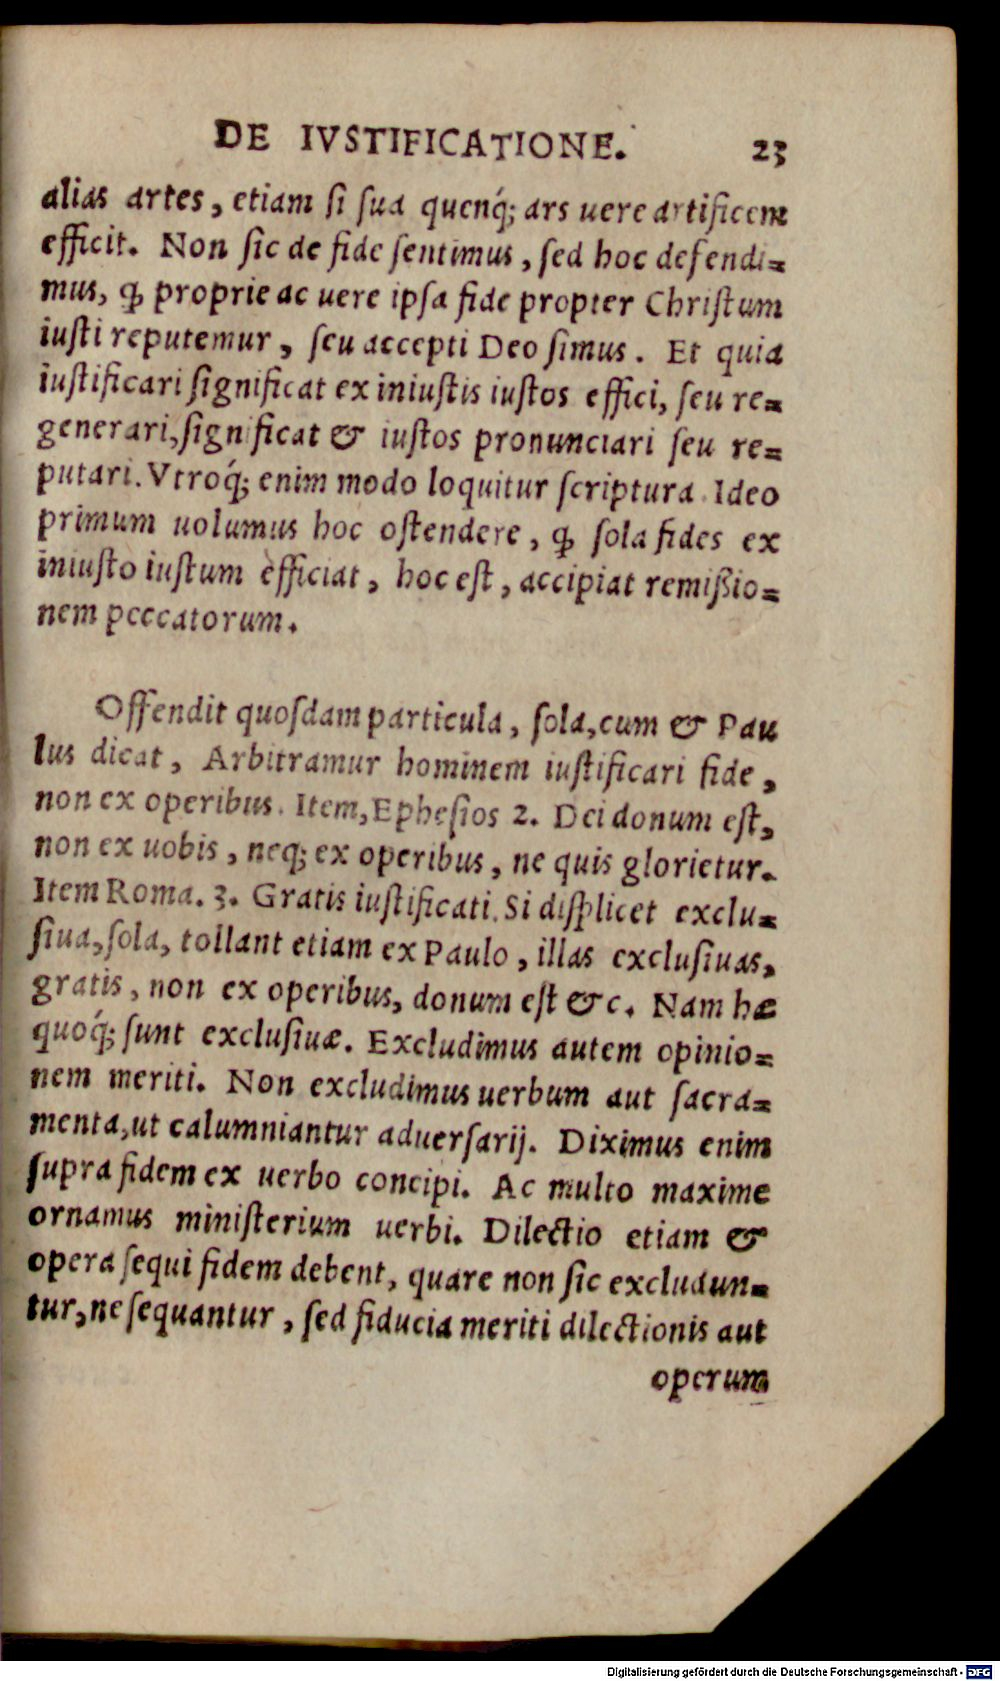 DE IVSTIFICATIONE. 23
alias artes, etiam si sua quenq́; ars uere artificem
efficit. Non sic de fide sentimus, sed hoc defendi=
mus, ꝙ proprie ac uere ipsa fide propter Christum
iusti reputemur, seu accepti Deo simus. Et quia
iustificari significat ex iniustis iustos effici, seu re=
generari, significat & iustos pronunciari seu re=
putari. Vtroq́; enim modo loquitur scriptura. Ideo
primum uolumus hoc ostendere, ꝙ sola fides ex
iniusto iustum efficiat, hoc est, accipiat remißio=
nem peccatorum.
Offendit quosdam particula, sola, cum & Pau
lus dicat, Arbitramur hominem iustificari fide,
non ex operibus. Item, Ephesios 2. Dei donum est,
non ex uobis, neq; ex operibus, ne quis glorietur.
Item Roma. 3. Gratis iustificati. Si displicet exclu=
siua, sola, tollant etiam ex Paulo, illas exclusiuas,
gratis, non ex operibus, donum est &c. Nam hæ
quoq́; sunt exclusiuæ. Excludimus autem opinio=
nem meriti. Non excludimus uerbum aut sacra=
menta, ut calumniantur aduersarij. Diximus enim
supra fidem ex uerbo concipi. Ac multo maxime
ornamus ministerium uerbi. Dilectio etiam &
opera sequi fidem debent, quare non sic excludun=
tur, ne sequantur, sed fiducia meriti dilectionis aut
operum
Digitalisierung gefördert durch die Deutsche Forschungsgemeinschaft - DFG